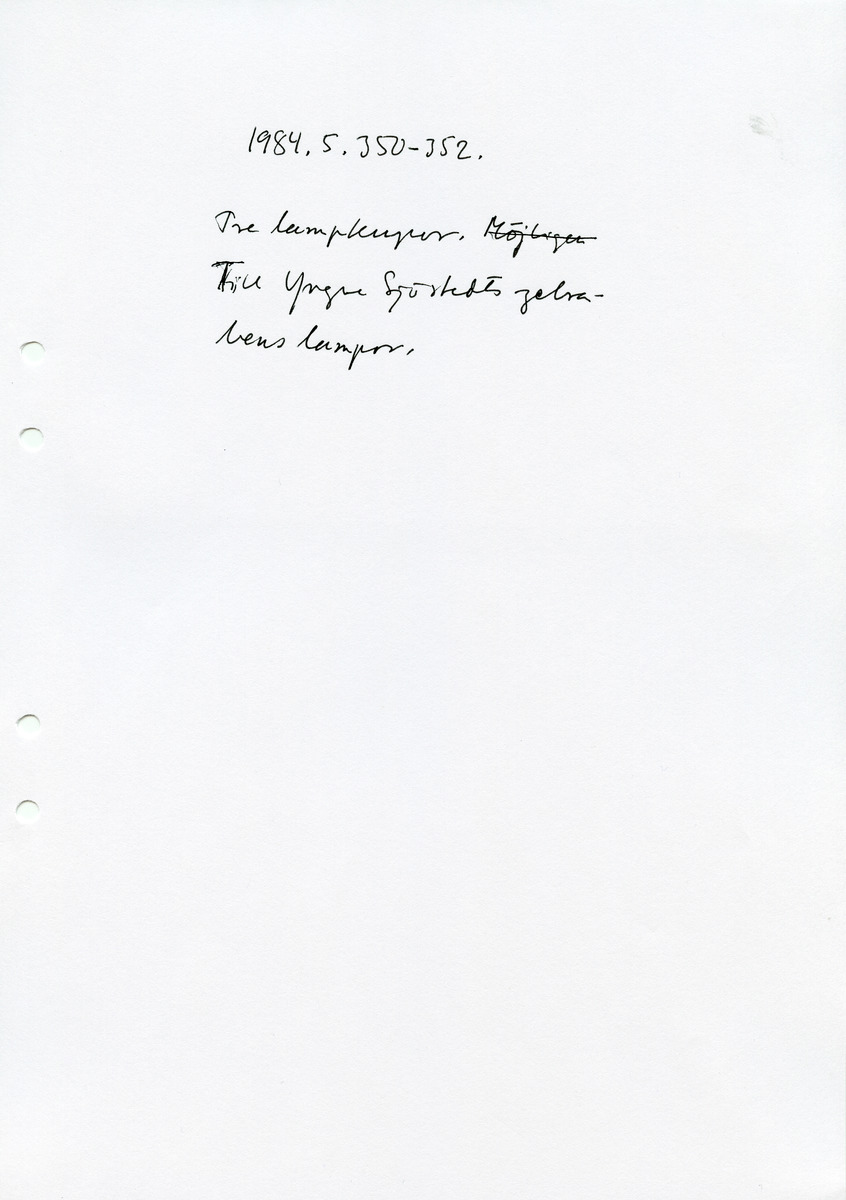 1984.5.350-352.
Tre lampkupor. Möjligen
Till Yngve Sjöstedts zebra-
bens lampor.